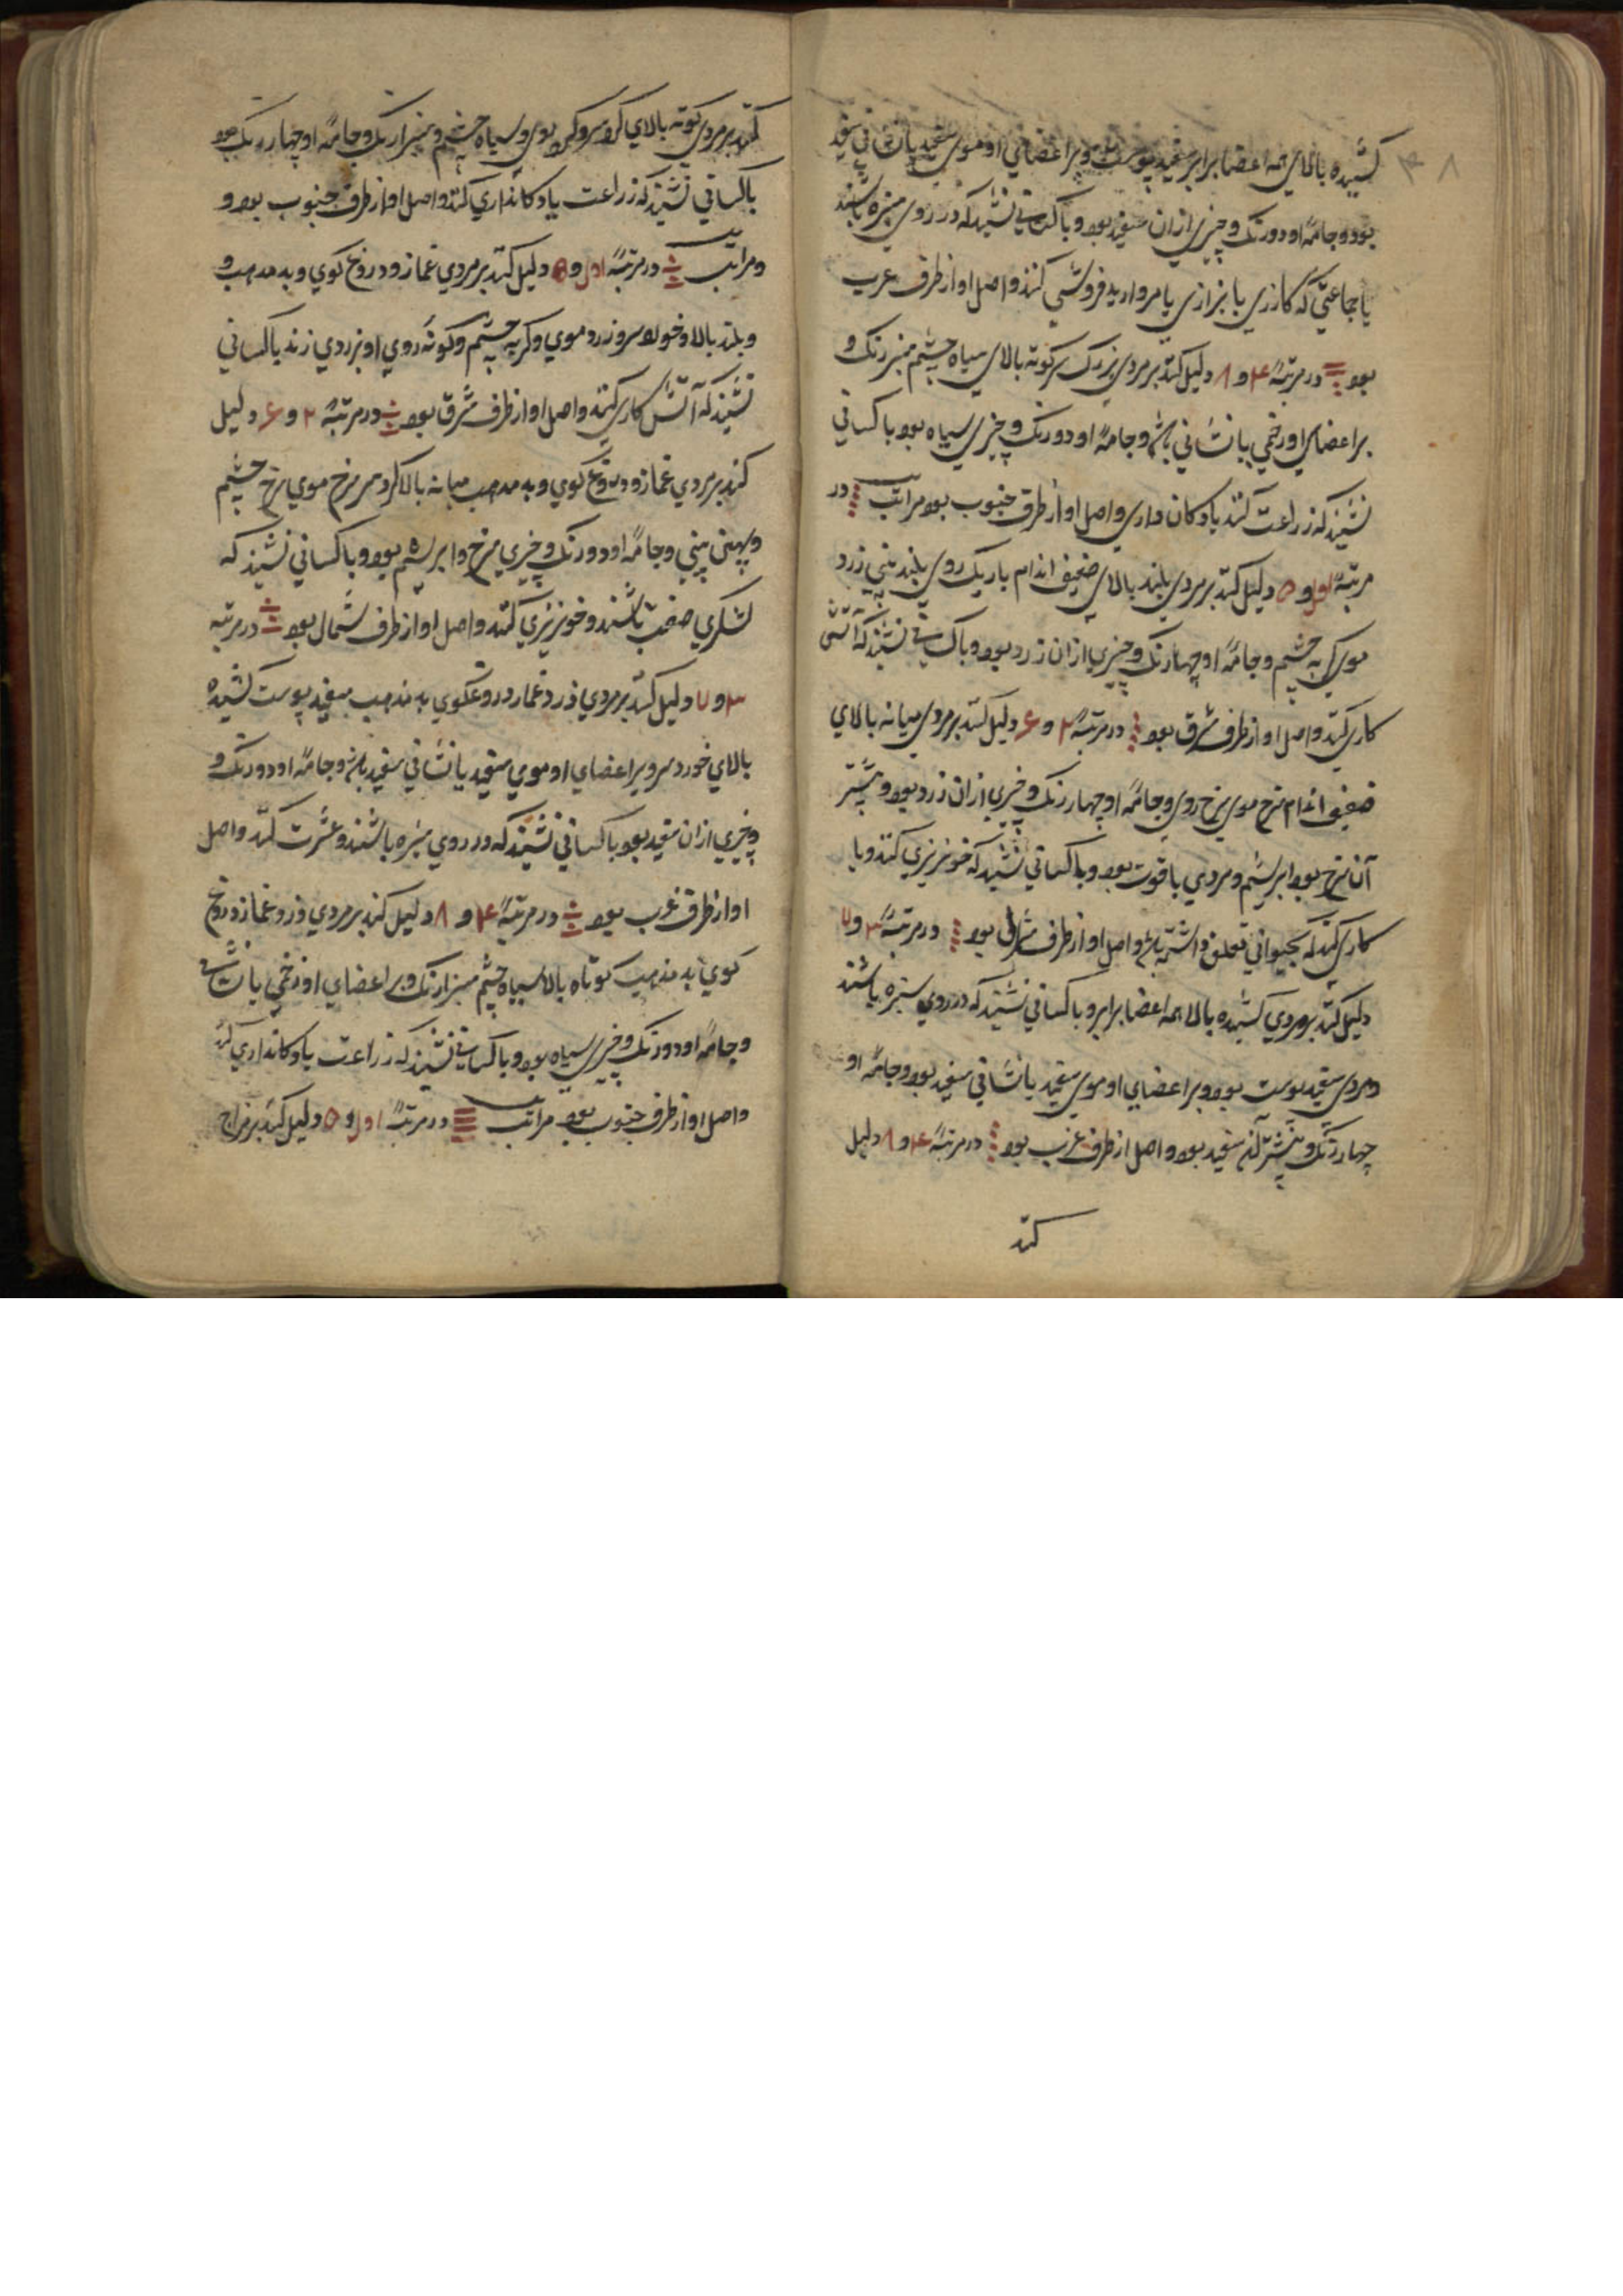 کشیده بالای همه اعضا برابر سفید پوست و بر اعضای او موی سفید یا نشانی سفید
بود و جامهٔ او دو رنک و چیزی از ان سفید بود و با کسانی نشیند که در روی سبزه باشند
یا جماعتی که کازری یا بزازی یا مروارید فروشی کنند و اصل او از طرف غرب
بود در مرتبهٔ ۴ و ۸ دلیل کند بر مردی بزرک سر کوته بالای سیاه چشم سبز رنک و
بر اعضای او زخمی یا نشانی باشد و جامهٔ او دو رنک و چیزی سیاه بود با کسانی
نشیند که زراعت کنند یا دکان داری و اصل او از طرف جنوب بود مراتب در
مرتبهٔ اول و ۵ دلیل کند بر مردی بلند بالای ضعیف اندام باریک روی بلند بینی زرد
موی کربه چشم و جامهٔ او چهار رنک و چیزی از ان زرد بود و با کسانی نشیند که آتشی
کاری کنند و اصل او از طرف شرق بود در مرتبهٔ ۲ و ۶ دلیل کند بر مردی میانه بالای
ضعیف اندام سرخ موی سرخ روی و جامهٔ او چهار رنک و چیزی از ان زرد بود و بیشتر
آن سرخ بود ابریشم و مردی با قوت بود و با کسانی نشیند که خونریزی کنند و یا
کاری کنند که بحیوانی تعلق داشته باشد و اصل او از طرف بود در مرتبهٔ ۳ و ۷
دلیل کند بر مردی کشیده بالا همه اعضا برابر و با کسانی نشیند که در روی سبزه باشند
و مردی سفید پوست بود و بر اعضای او موی سفید یا نشانی سفید بود و جامهٔ او
چهار رنک و بیشتر آن سفید بود و اصل از طرف غرب بود در مرتبهٔ ۴ و ۸ دلیل
کند
کند بر مردی کوته بالای کرد سر و کرد موی و سیاه چشم و سبزا رنک و جامهٔ او چهار رنک بود
با کسانی نشیند که زراعت یا دکانداری کنند و اصل او از طرف جنوب بود و
و مراتب در مرتبهٔ اول و ۵ دلیل کند بر مردی غماز و دروغ کوی و بد مذهب و
و بلند بالا و خورد سر و زرد موی و کربه چشم و کوته روی او بزردی زند با کسانی
نشیند که آتش کاری کنند و اصل او از طرف شرق بود در مرتبهٔ ۲ و ۶ دلیل
کند بر مردی غماز و دروغ کوی و بد مذهب میانه بالا کرد سر سرخ موی سرخ چشم
و پهن بینی و جامهٔ او دو رنک و چیزی سرخ و ابریشم بود و با کسانی نشیند که
لشکری صفت باشند و خونریزی کنند و اصل او از طرف شمال بود در مرتبه
۳ و ۷ دلیل کند بر مردی دزد و غماز و دروغکوی بد مذهب سفید پوست کشیده
بالای خورد سر و بر اعضای او موی سفید یا نشانی سفید باشد و جامهٔ او دو رنک و
و چیزی از ان سفید بود با کسانی نشیند که در روی سبزه باشند و عشرت کنند و اصل
او از طرف غرب بود در مرتبهٔ ۴ و ۸ دلیل کند بر مردی دزد و غماز و دروغ
کوی بد مذهب کوتاه بالا سیاه چشم سبزا رنک و بر اعضای او زخمی یا نشانی
و جامهٔ او دو رنک و چیزی سیاه بود و با کسانی نشیند که زراعت یا دکانداری کنند
و اصل او از طرف جنوب بود مراتب در مرتبهٔ اول و ۵ دلیل کند بر مزاج